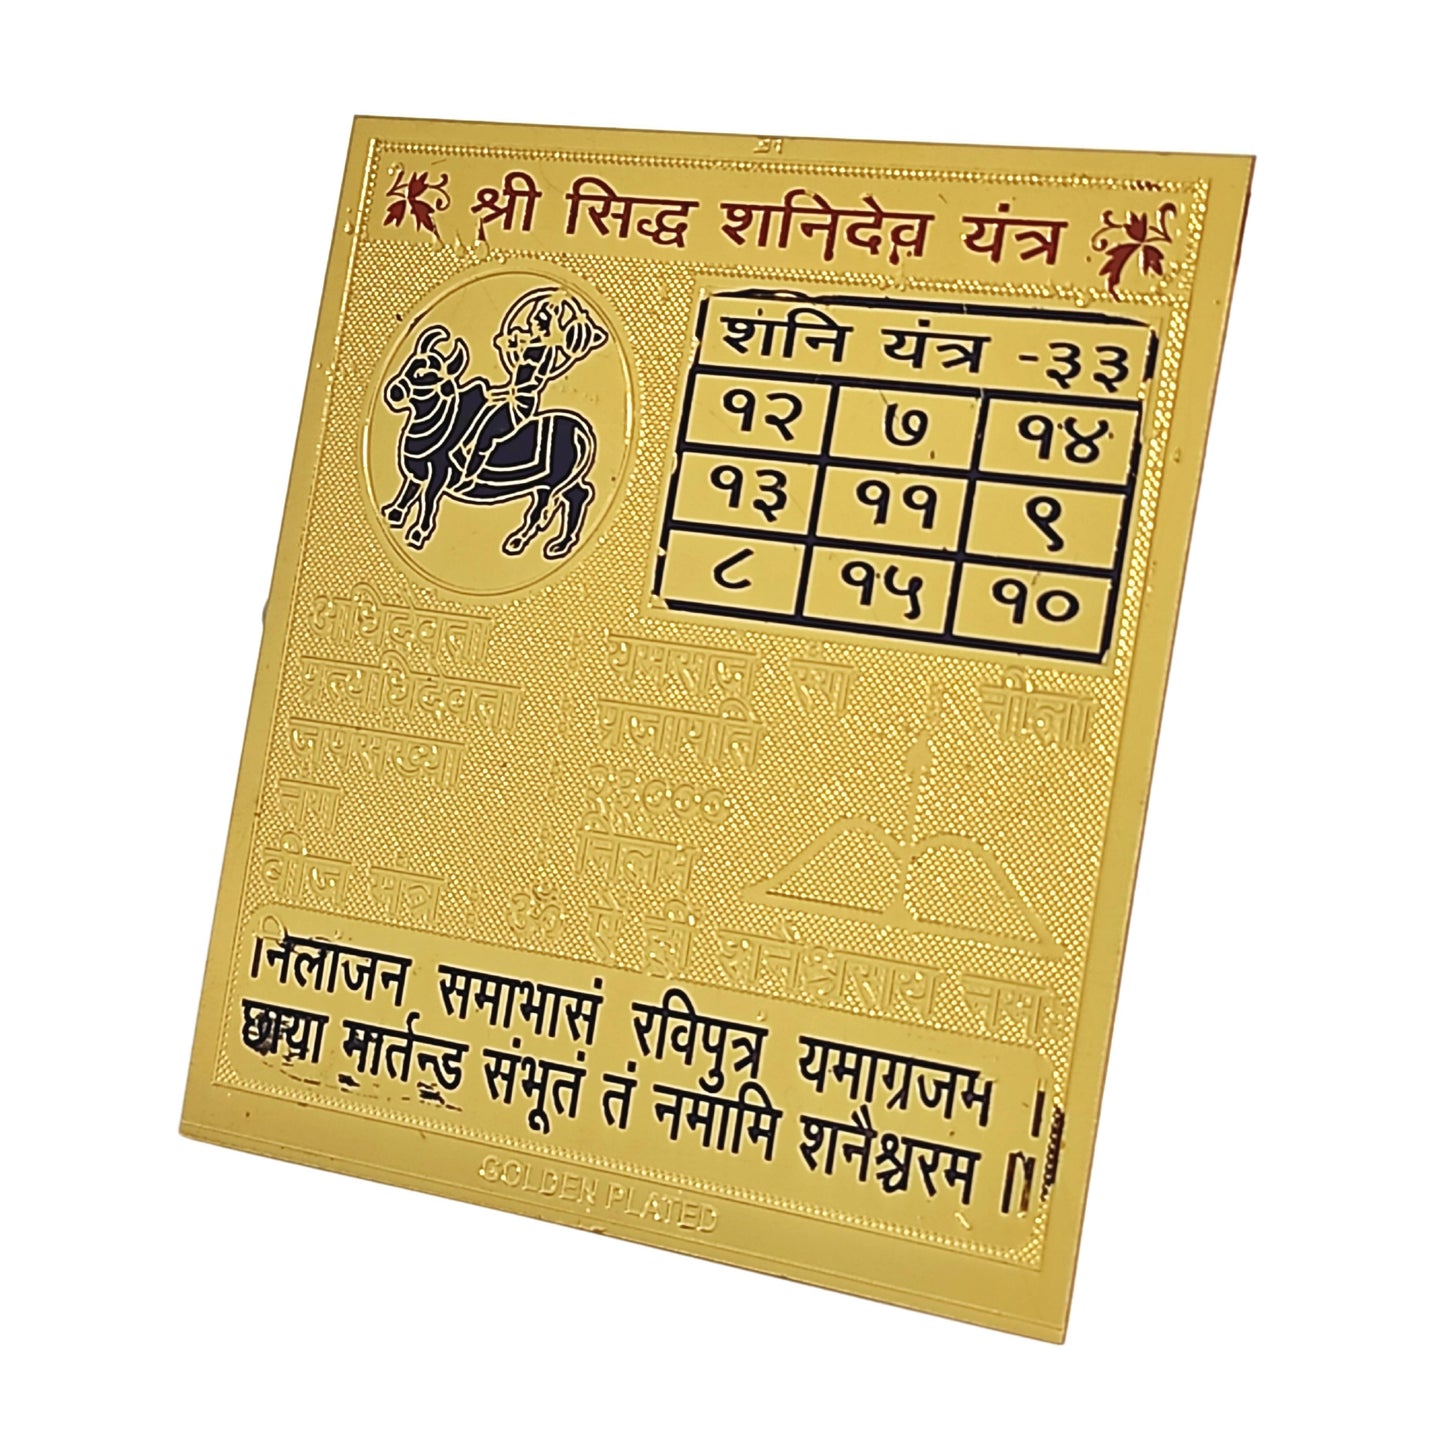 श्री सिद्ध शनिदेव यंत्र
शनि यंत्र -३३
१२ ७ १४
१३ ११ ९
८ १५ १०
अधिदेवता : यमराज रंग : नीला
प्रत्याधिदेवता : प्रजापति
जपसंख्या : २३०००
नग : निलम
बीज मंत्र : ॐ ऐं ह्रीं शनैश्चराय नमः
निलाजन समाभासं रविपुत्र यमाग्रजम ।
छाया मार्तन्ड संभूतं तं नमामि शनैश्चरम ॥
GOLDEN PLATED